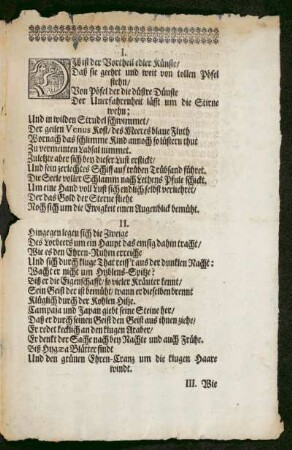 I.
Diß ist der Vortheil edler Künste/
Daß sie geehrt und weit von tollen Pöfel
stehn/
Von Pöfel der die düstre Dünste
Der Unerfahrenheit läst um die Stirne
wehn;
Und in wilden Strudel schwemmet/
Der geilen Venus Kost/ des Meeres blaue Fluth
Wornach das schlimme Kind annoch so lüstern thut
Zu vermeinten Labsal nimmet.
Zuletzte aber sich bey dieser Lust erstickt/
Und sein zerlechstes Schiff auf trüben Trübsand führet.
Die Seele voller Schlamm nach Lethens Pfule schickt.
Um eine Hand voll Lust sich endlich selbst verliehret/
Der das Gold der Sterne flieht
Noch sich um die Ewigkeit einen Augenblick bemüht.
II.
Hingegen legen sich die Zweige
Des Lorbeers um ein Haupt das emsig dahin tracht/
Wie es den Ehren-Ruhm erreiche
Und sich durch kluge That reiss't aus der dunklen Nacht:
Wacht er nicht um Hyblens-Spitze?
Biß er die Eigenschafft/ so vieler Kräuter kennt/
Sein Geist der ist bemüht/ wann er dieselben brennt
Klüglich durch der Kohlen Hitze.
Campaia und Japan giebt seine Steine her/
Daß er durch seinen Geist den Geist aus ihnen ziehe/
Er redet kecklich an den klugen Araber/
Er denkt der Sache nach bey Nachte und auch Frühe.
Biß Hygæa Blätter findt
Und den grünen Ehren-Crantz um die klugen Haare
windt.
III. Wie